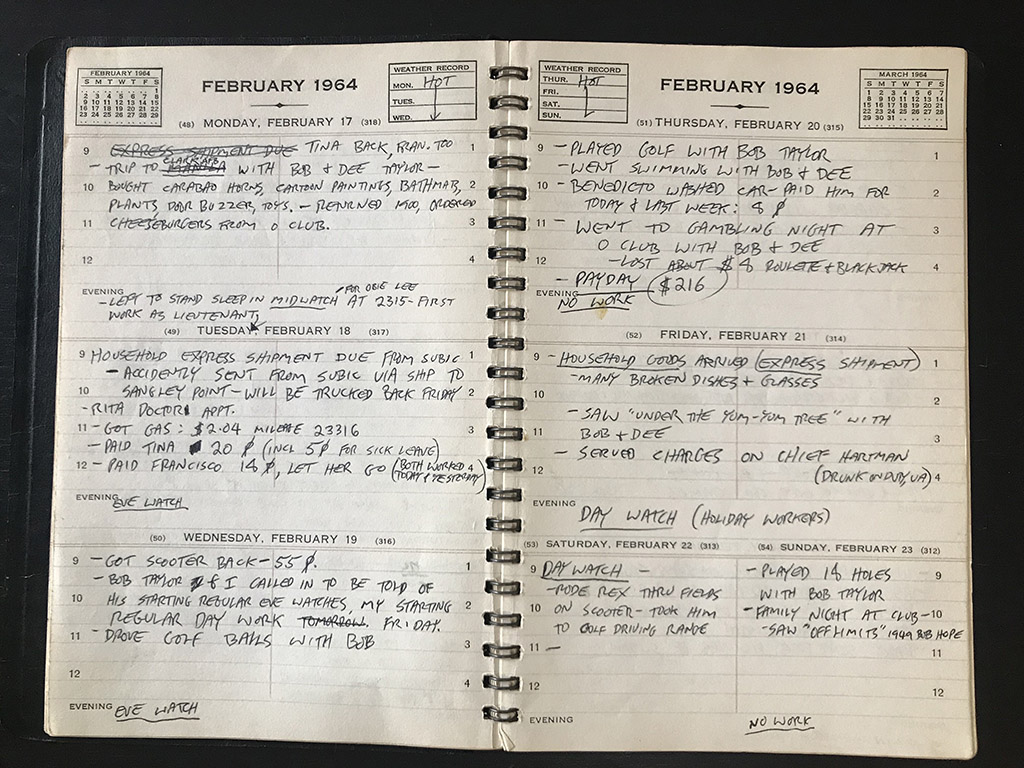 FEBRUARY 1964
S M T W T F S
1
2 3 4 5 6 7 8
9 10 11 12 13 14 15
16 17 18 19 20 21 22
23 24 25 26 27 28 29
FEBRUARY 1964
WEATHER RECORD
MON. HOT
TUES.
WED.
(48) MONDAY, FEBRUARY 17 (318)
9 EXPRESS SHIPMENT DUE TINA BACK, FRAN. TOO 1
CLARK AFB
- TRIP TO MANILA WITH BOB & DEE TAYLOR -
10 BOUGHT CARABAO HORNS, CARTOON PAINTINGS, BATHMAT, 2
PLANTS, DOOR BUZZER, TOYS. - RETURNED 1500, ORDERED
11 CHEESEBURGERS FROM O CLUB. 3
12 4
EVENING
FOR OBIE LEE
- LEFT TO STAND SLEEP IN MIDWATCH AT 2315 - FIRST
WORK AS LIEUTENANT
(49) TUESDAY, FEBRUARY 18 (317)
9 HOUSEHOLD EXPRESS SHIPMENT DUE FROM SUBIC 1
- ACCIDENTLY SENT FROM SUBIC VIA SHIP TO
10 SANGLEY POINT - WILL BE TRUCKED BACK FRIDAY 2
- RITA DOCTOR APPT.
11 - GOT GAS: $2.04 MILEAGE 23316 3
- PAID TINA 20 ₱ (INCL 5₱ FOR SICK LEAVE)
12 - PAID FRANCISCO 18 ₱, LET HER GO (BOTH WORKED 4
TODAY & YESTERDAY)
EVENING EVE WATCH
(50) WEDNESDAY, FEBRUARY 19 (316)
9 - GOT SCOOTER BACK - 55 ₱. 1
- BOB TAYLOR & I CALLED IN TO BE TOLD OF
10 HIS STARTING REGULAR EVE WATCHES, MY STARTING 2
REGULAR DAY WORK TOMORROW. FRIDAY.
11 - DROVE GOLF BALLS WITH BOB 3
12 4
EVENING EVE WATCH
WEATHER RECORD
THUR. HOT
FRI.
SAT.
SUN.
FEBRUARY 1964
MARCH 1964
S M T W T F S
1 2 3 4 5 6 7
8 9 10 11 12 13 14
15 16 17 18 19 20 21
22 23 24 25 26 27 28
29 30 31
(51) THURSDAY, FEBRUARY 20 (315)
9 - PLAYED GOLF WITH BOB TAYLOR 1
- WENT SWIMMING WITH BOB & DEE
10 - BENEDICTO WASHED CAR - PAID HIM FOR 2
TODAY & LAST WEEK: 8 ₱
11 - WENT TO GAMBLING NIGHT AT 3
O CLUB WITH BOB & DEE
12 - LOST ABOUT $8 ROULETE & BLACKJACK 4
- PAYDAY $216
EVENING
NO WORK
(52) FRIDAY, FEBRUARY 21 (314)
9 - HOUSEHOLD GOODS ARRIVED (EXPRESS SHIPMENT) 1
- MANY BROKEN DISHES & GLASSES
10 2
- SAW "UNDER THE YUM-YUM TREE" WITH
11 BOB & DEE 3
- SERVED CHARGES ON CHIEF HARTMAN
12 (DRUNK ON DUTY, UA) 4
EVENING DAY WATCH (HOLIDAY WORKERS)
(53) SATURDAY, FEBRUARY 22 (313)
9 DAY WATCH -
- RODE REX THRU FIELDS
10 ON SCOOTER - TOOK HIM
TO GOLF DRIVING RANGE
11 -
12
EVENING
(54) SUNDAY, FEBRUARY 23 (312)
- PLAYED 18 HOLES 9
WITH BOB TAYLOR
- FAMILY NIGHT AT CLUB - 10
- SAW "OFF LIMITS" 1949 BOB HOPE
11
12
NO WORK